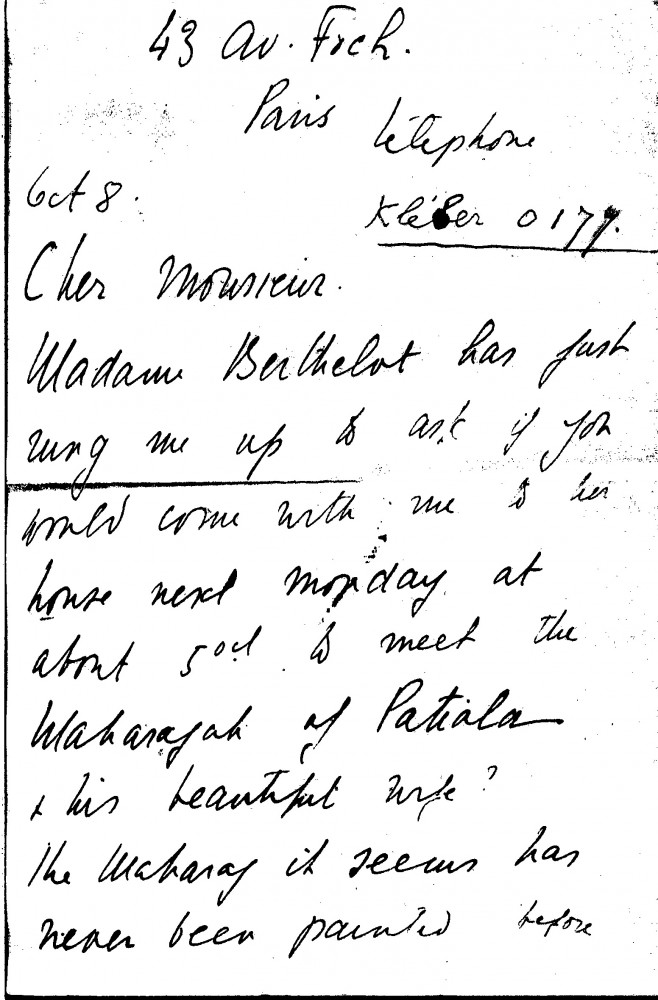 43 Av. Foch.
Paris
téléphone
Oct 8.
Kléber 0177.
Cher Monsieur.
Madame Berthelot has just
rung me up to ask if you
would come with me to her
house next monday at
about 5 ocl to meet the
Maharajah of Patiala
& his beautiful wife?
The Maharaj it seems has
never been painted before